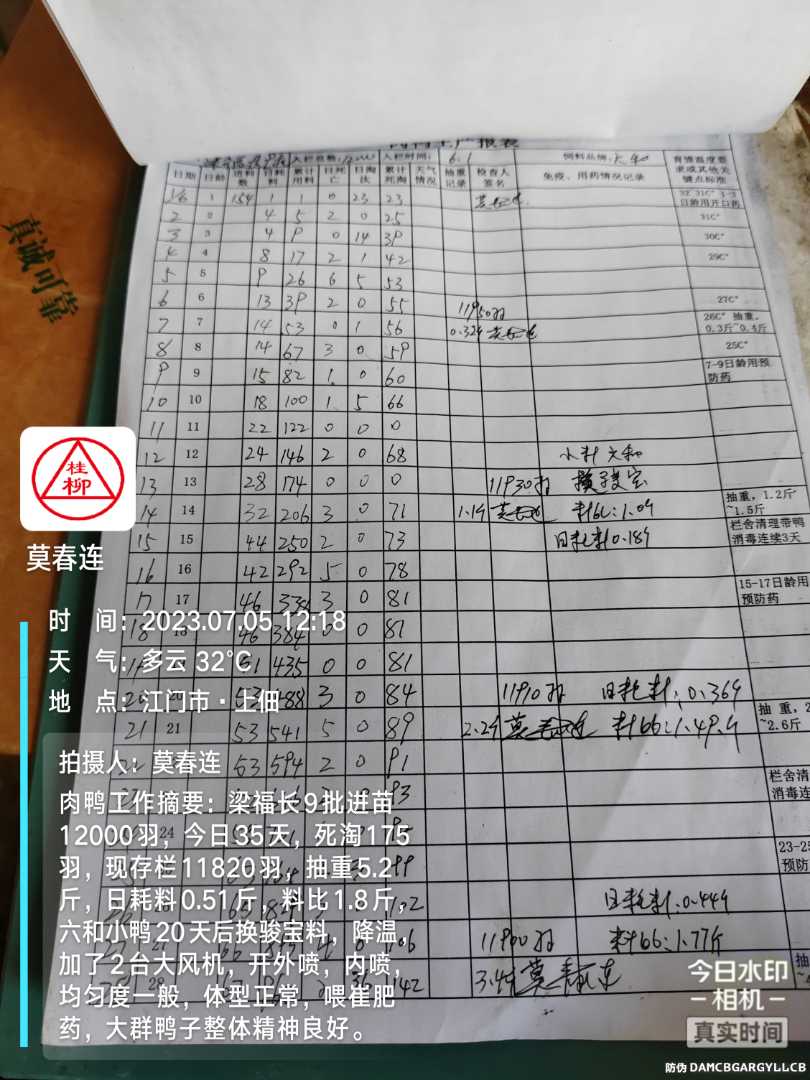 肉鸭生产报表
入栏总数: 12000 入栏时间: 6.1 饲料品牌: 六和
日期 日龄 进料数 日耗料 累计用料 日死亡 日淘汰 累计死淘 天气情况 抽重记录 检查人签名 免疫、用药情况记录 育雏温度要求或其他关键点标准
1/6 1 154 1 1 0 23 23 32-31C° 1-3日龄用开口药
2 2 4 5 2 0 25 31C°
3 3 4 9 0 14 39 30C°
4 4 8 17 2 1 42 29C°
5 5 9 26 6 5 53
6 6 13 39 2 0 55 11950羽 27C°
7 7 14 53 0 1 56 0.32斤 莫春连 26C° 抽重, 0.3斤~0.4斤
8 8 14 67 3 0 59 25C°
9 9 15 82 1 0 60 7-9日龄用预防药
10 10 18 100 1 5 66
11 11 22 122 0 0 0
12 12 24 146 2 0 68 小料六和
13 13 28 174 0 0 0 11930羽 换骏宝
14 14 32 206 3 0 71 1.1斤 莫春连 料比:1.0斤 抽重, 1.2斤~1.5斤
15 15 44 250 2 0 73 日耗料0.18斤 栏舍清理带鸭消毒连续3天
16 16 42 292 5 0 78
17 17 46 338 3 0 81 15-17日龄用预防药
18 18 46 384 0 0 81
51 435 0 0 81
20 20 53 488 3 0 84 11910羽 日耗料:0.36斤
21 21 53 541 5 0 89 2.2斤 莫春连 料比:1.49斤 抽重, 2 ~2.6斤
53 594 2 0 91
93 栏舍清 消毒连
24
99 23-25 预防
102 日耗料:0.44斤
106 11900羽 料比:1.77斤
28 142 3.4斤 莫春连 抽
真诚可靠
桂柳
莫春连
时 间: 2023.07.05 12:18
天 气: 多云 32℃
地 点: 江门市·上佃
拍摄人: 莫春连
肉鸭工作摘要: 梁福长9批进苗
12000羽，今日35天，死淘175
羽，现存栏11820羽，抽重5.2
斤，日耗料0.51斤，料比1.8斤，
六和小鸭20天后换骏宝料，降温
加了2台大风机，开外喷，内喷，
均匀度一般，体型正常，喂崔肥
药，大群鸭子整体精神良好。
今日水印
-相机-
真实时间
防伪 DAMCBGARGYLLCB